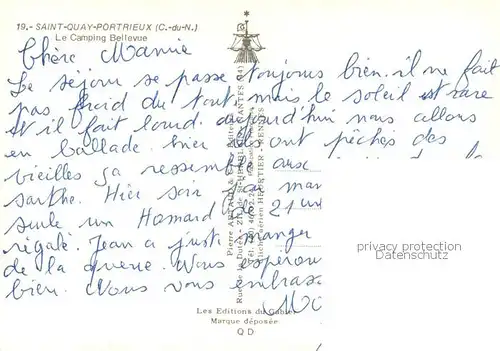 19.- SAINT-QUAY-PORTRIEUX (C.-du-N.)
Le Camping Bellevue
Chère Mamie
Le séjour se passe toujours bien. il ne fait
pas froid du tout, mais le soleil est rare
et il fait lourd. aujourd'hui nous allons
en ballade. hier ils ont pêchés des
vieilles ça ressemble aux
sarthe. Hier soir j'ai man
seule un Homard de 21 cm
régale. Jean a juste manger
de la queue. Nous esperon
bien. Nous vous embrass
privacy protection
Datenschutz
Les Editions du Gabier
Marque déposée
Q D